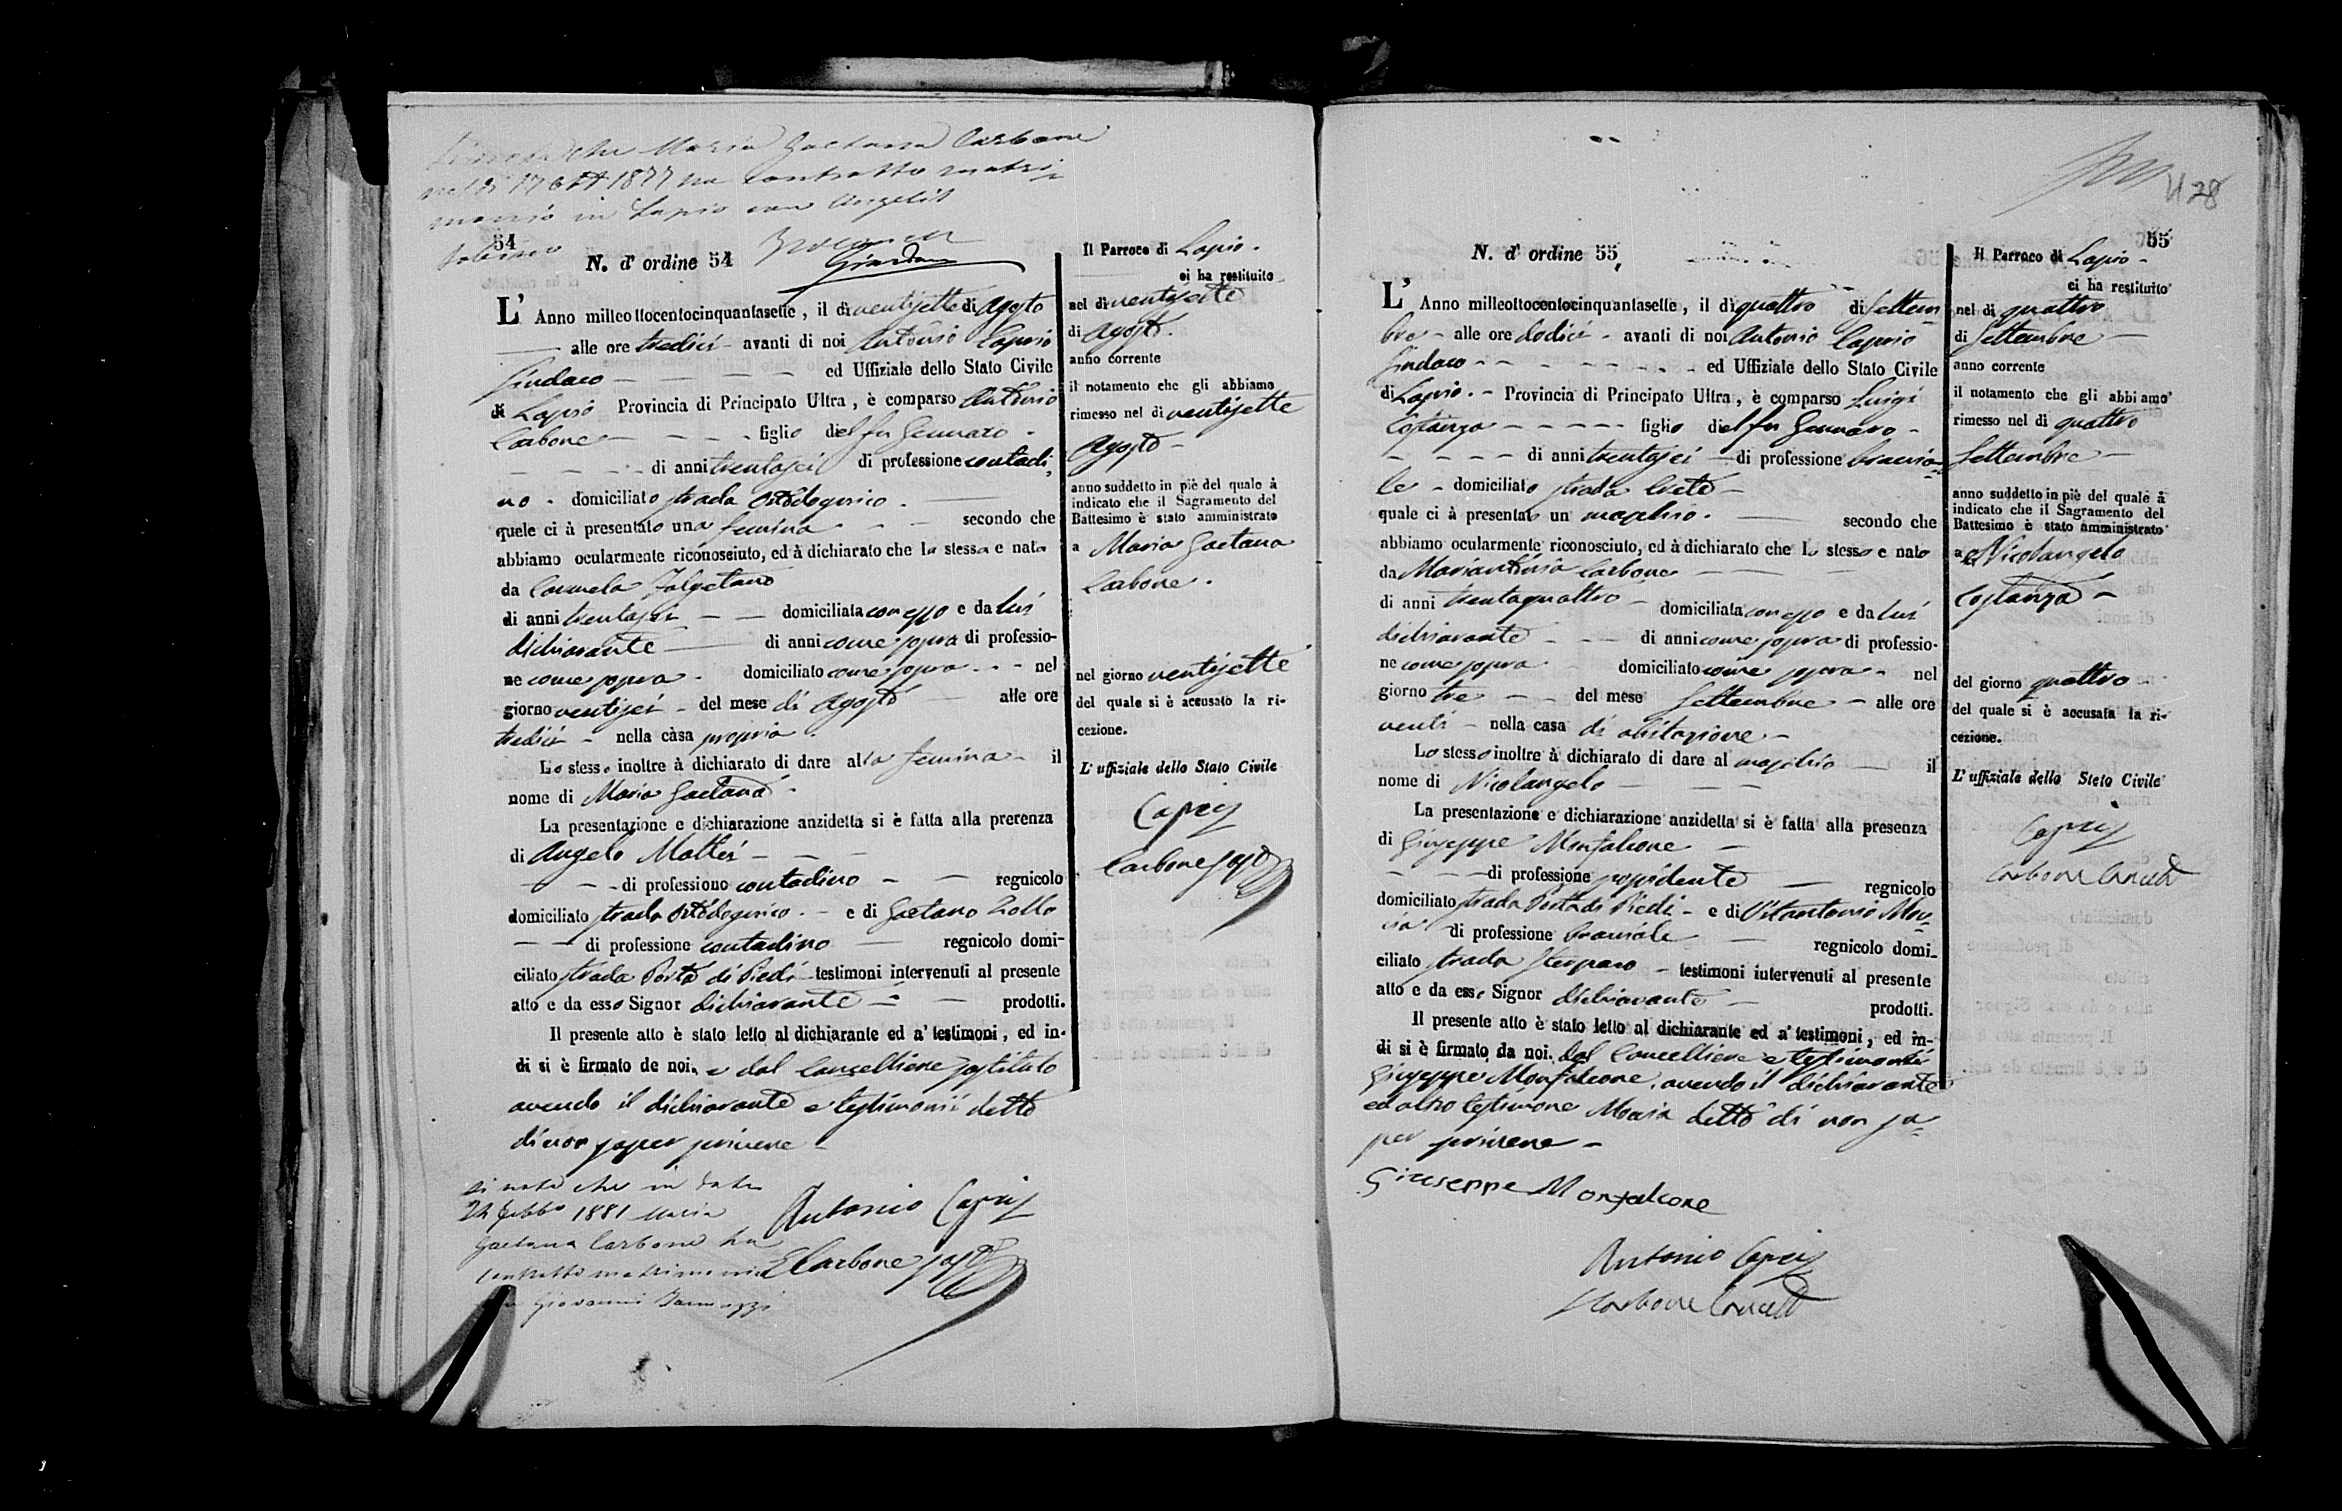 che Maria Gaetana Carbone
nel dì 17 ott 1877 ha contratto matri-
monio in Lapio con Angelo
54
N. d' ordine 54
L' Anno milleottocentocinquantasette, il dì ventisette di Agosto
alle ore tredici - avanti di noi Antonio Caprio
Sindaco - - - - ed Uffiziale dello Stato Civile
di Lapio Provincia di Principato Ultra, è comparso Antonio
Carbone - - - - figlio del fu Gennaro -
- - - - di anni trentasei di professione contadi-
no - domiciliato strada
quele ci à presentato una femina - - secondo che
abbiamo ocularmente riconosciuto, ed à dichiarato che la stessa e nata
da Carmela Falzetano
di anni trentasei - - domiciliata con esso e da lui
dichiarante di anni come sopra di professio-
ne come sopra - domiciliato come sopra - - - nel
giorno ventisei - del mese di Agosto - alle ore
tredici - nella casa propria.
Lo stesso inoltre à dichiarato di dare alla femina - il
nome di Maria Gaetana -
La presentazione e dichiarazione anzidetta si è fatta alla prerenza
di Angelo Mattei - - -
- - - di professiono contadino - - regnicolo
domiciliato strada - e di Gaetano Zollo
- - di professione contadino - regnicolo domi-
ciliato strada Porta di Piedi - testimoni intervenuti al presente
atto e da esso Signor dichiarante - - prodotti.
Il presente atto è stato letto al dichiarante ed a' testimoni, ed in-
di si è firmato de noi, e dal Cancelliere sostituto
avendo il dichiarante e testimonii detto
di non saper scrivere -
Antonio Caprio
Carbone sost
Si nota che in data
24 Febbo 1881 Maria
Gaetana Carbone ha
contratto matrimonio
Giovanni Iannuzzi
Il Parroco di Lapio -
ci ha restituito
nel dì ventisette
di Agosto.
anno corrente
il notamento che gli abbiamo
rimesso nel dì ventisette
Agosto -
anno suddetto in piè del quale à
indicato che il Sagramento del
Battesimo è stato amministrato
a Maria Gaetana
Carbone.
nel giorno ventisette
del quale si è accusato la ri-
cezione.
L' uffiziale dello Stato Civile
Caprio
Carbone sost
428
55
N. d' ordine 55
L' Anno milleottocentocinquantasette, il dì quattro di Settem
bre - alle ore dodici - avanti di noi Antonio Caprio
Sindaco - - - - - - ed Uffiziale dello Stato Civile
di Lapio. - Provincia di Principato Ultra, è comparso Luigi
Costanza - - - - - figlio del fu Gennaro -
- - - - di anni trentasei - di professione braccia-
le - domiciliato strada
quale ci à presentato un maschio. - secondo che
abbiamo ocularmente riconosciuto, ed à dichiarato che lo stesso e nato
da Mariantonia Carbone - - -
di anni trentaquattro - domiciliata con esso e da lui
dichiarante - - - di anni come sopra di professio-
ne come sopra - domiciliato come sopra - nel
giorno tre - - del mese Settembre - alle ore
venti - nella casa di abitazione -
Lo stesso inoltre à dichiarato di dare al maschio - il
nome di Nicolangelo - - -
La presentazione e dichiarazione anzidetta si è fatta alla presenza
di Giuseppe Monfalcone -
- - - di professione possidente - regnicolo
domiciliato strada Porta di Piedi - e di Vitantonio Moc-
cia - di professione bracciale - regnicolo domi-
ciliato strada - testimoni intervenuti al presente
atto e da esso Signor dichiarante - prodotti.
Il presente atto è stato letto al dichiarante ed a' testimoni, ed in-
di si è firmato da noi, dal Cancelliere e testimonii
Giuseppe Monfalcone, avendo il dichiarante
ed altro testimone Moccia detto di non sa-
per scrivere -
Giuseppe Monfalcone
Antonio Caprio
Carbone Cancell
Il Parroco di Lapio -
ci ha restituito
nel dì quattro
di Settembre -
anno corrente
il notamento che gli abbiamo
rimesso nel dì quattro
Settembre -
anno suddetto in piè del quale à
indicato che il Sagramento del
Battesimo è stato amministrato
a Nicolangelo
Costanza -
del giorno quattro
del quale si è accusata la ri-
cezione.
L' uffiziale dello Stato Civile
Caprio
Carbone Cancell